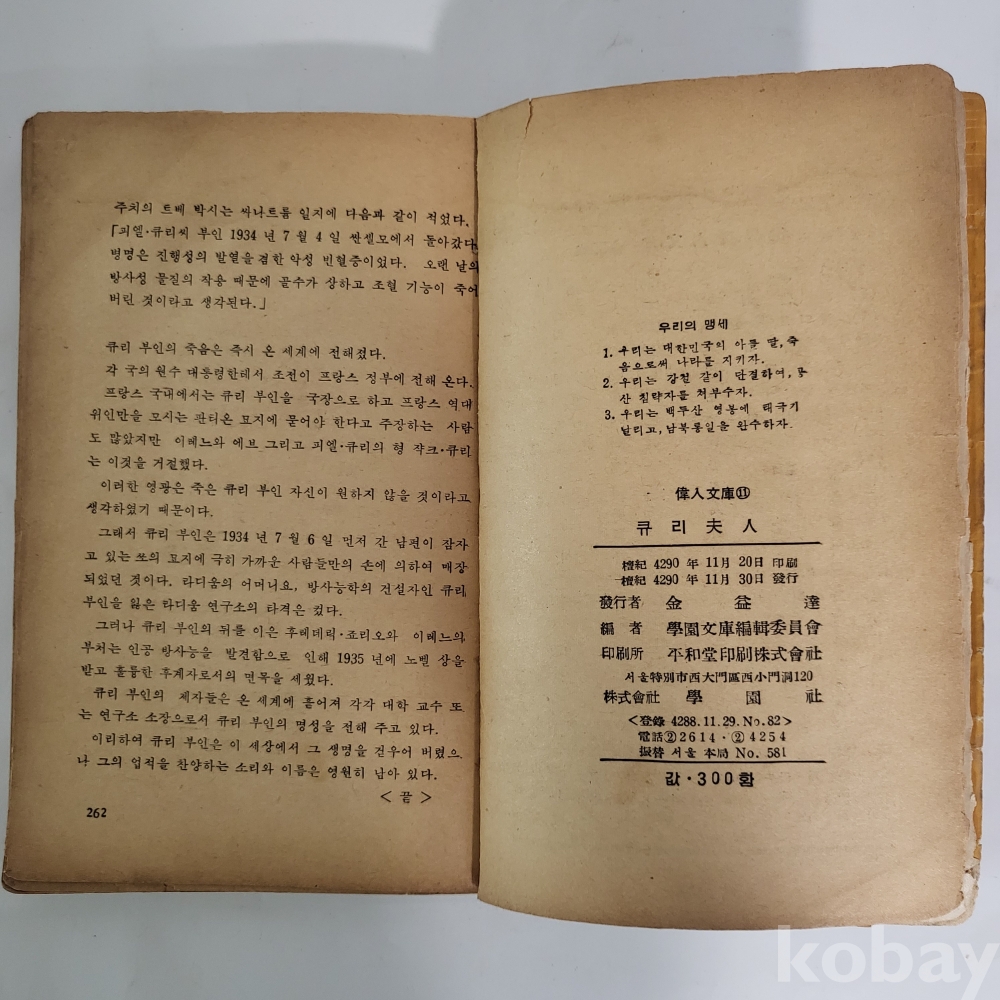 주치의 트베 박시는 싸나트룸 일지에 다음과 같이 적었다.
「피엘·큐리씨 부인 1934 년 7 월 4 일 싼셀모에서 돌아갔다
병명은 진행성의 발열을 겸한 악성 빈혈증이었다. 오랜 날의
방사성 물질의 작용 때문에 골수가 상하고 조혈 기능이 죽어
버린 것이라고 생각된다.」
큐리 부인의 죽음은 즉시 온 세계에 전해졌다.
각 국의 원수 대통령한테서 조전이 프랑스 정부에 전해 온다.
프랑스 국내에서는 큐리 부인을 국장으로 하고 프랑스 역대
위인만을 모시는 판터온 묘지에 묻어야 한다고 주장하는 사람
도 많았지만 이레느와 에브 그리고 피엘·큐리의 형 쟈크·큐리
는 이것을 거절했다.
이러한 영광은 죽은 큐리 부인 자신이 원하지 않을 것이라고
생각하였기 때문이다.
그래서 큐리 부인은 1934 년 7 월 6 일 먼저 간 남편이 잠자
고 있는 쏘의 묘지에 극히 가까운 사람들만의 손에 의하여 매장
되었던 것이다. 라디움의 어머니요, 방사능학의 건설자인 큐리
부인을 잃은 라디움 연구소의 타격은 컸다.
그러나 큐리 부인의 뒤를 이은 후레데릭·죠리오와 이레느의
부처는 인공 방사능을 발견함으로 인해 1935 년에 노벨 상을
받고 훌륭한 후계자로서의 면목을 세웠다.
큐리 부인의 제자들은 온 세계에 흩어져 각각 대학 교수 또
는 연구소 소장으로서 큐리 부인의 명성을 전해 주고 있다.
이리하여 큐리 부인은 이 세상에서 그 생명을 걷우어 버렸으
나 그의 업적을 찬양하는 소리와 이름은 영원히 남아 있다.
< 끝 >
262
우리의 맹세
1. 우리는 대한민국의 아들 딸, 죽
음으로써 나라를 지키자.
2. 우리는 강철 같이 단결하여, 공
산 침략자를 쳐부수자.
3. 우리는 백두산 영봉에 태극기
날리고, 남북통일을 완수하자.
偉人文庫⑪
큐리夫人
檀紀 4290 年 11月 20日 印刷
檀紀 4290 年 11月 30日 發行
發行者 金益達
編者 學園文庫編輯委員會
印刷所 平和堂印刷株式會社
서울特別市西大門區西小門洞120
株式會社 學園社
<登錄 4288.11.29. No.82>
電話②2614·②4254
振替 서울 本局 No. 581
값·300환
kobay